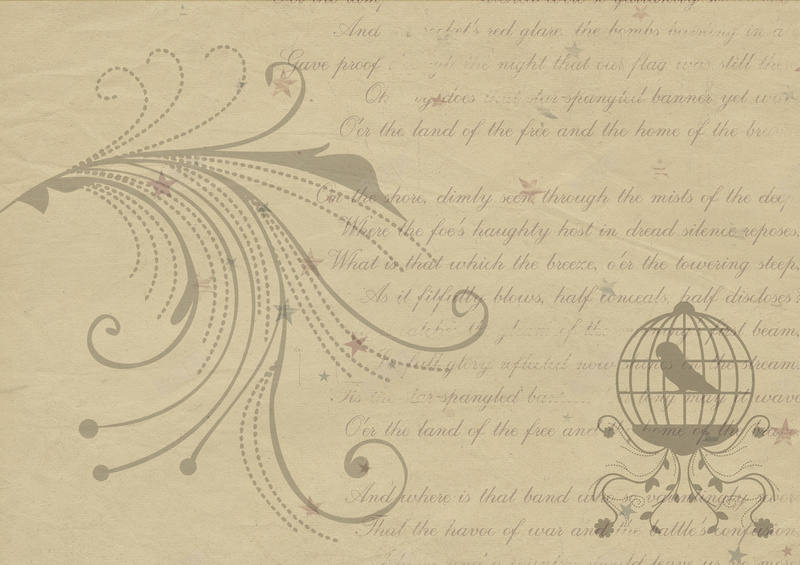 And rocket's red glare, the bombs bursting in a
Gave proof through the night that our flag was still the
Oh does that star-spangled banner yet wa
O'er the land of the free and the home of the bra
On the shore, dimly seen through the mists of the deep
Where the foe's haughty host in dread silence reposes,
What is that which the breeze, o'er the towering steep,
As it fitfully blows, half conceals, half discloses?
catches the gleam of the first beam,
In full glory reflected now shines the stream:
'Tis the star-spangled ban long may it wave
O'er the land of the free and home of the
And where is that band who so vauntingly swore
That the havoc of war and the battle's confusion,
leave us no more